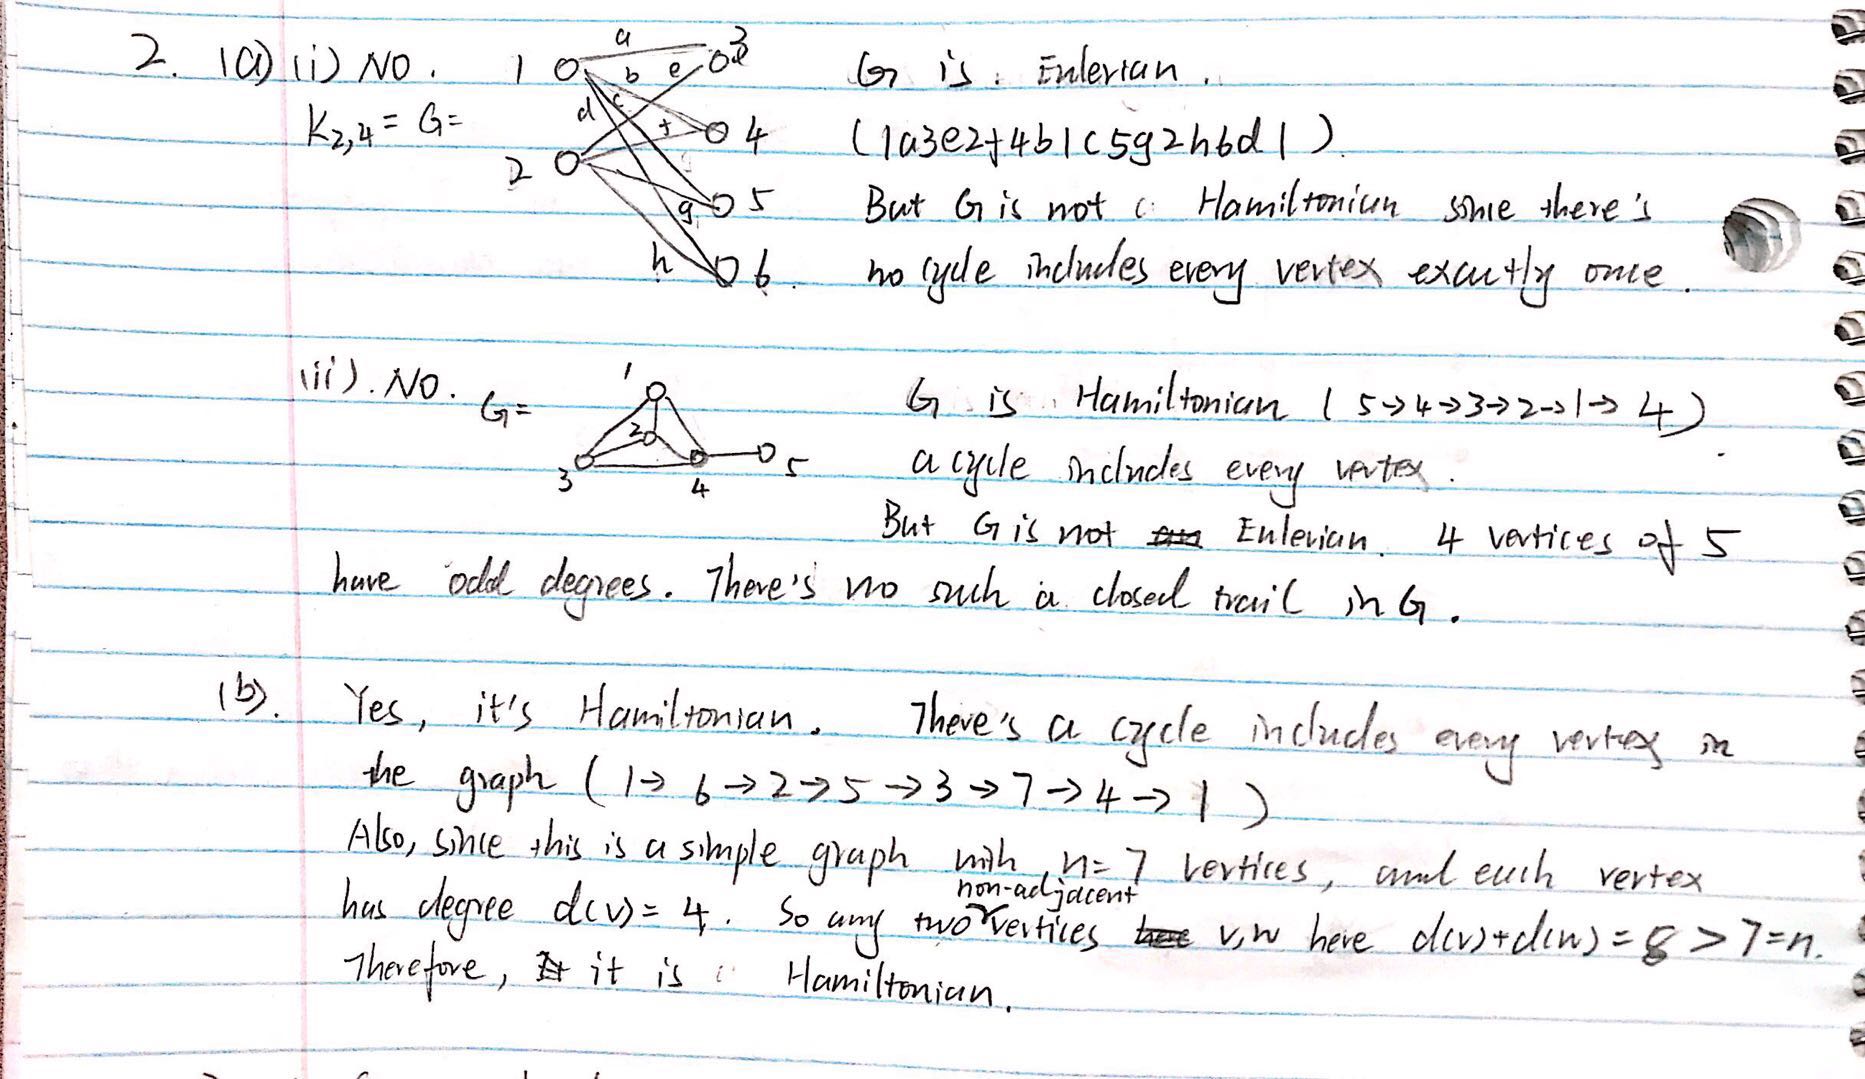 2. (a) (i) NO. 1 a b e 3 G is Eulerian.
K2,4 = G = d c f 4 (1a3e2f4b1c5g2h6d1).
2 g 5 But G is not Hamiltonian since there's
h 6. no cycle includes every vertex exactly once.
(ii). NO. G= 1 2 3 4 5 G is Hamiltonian (5→4→3→2→1→4)
a cycle includes every vertex.
But G is not Eulerian. 4 vertices of 5
have odd degrees. There's no such a closed trail in G.
(b). Yes, it's Hamiltonian. There's a cycle includes every vertex in
the graph (1→6→2→5→3→7→4→1)
Also, since this is a simple graph with n=7 vertices, and each vertex
has degree d(v)=4. So any two non-adjacent vertices v,w here d(v)+d(w)=8>7=n.
Therefore, it is Hamiltonian.